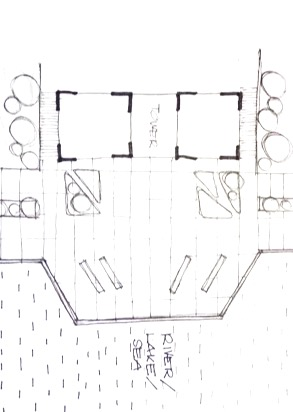 TOWER
RIVER/
LAKE/
SEA